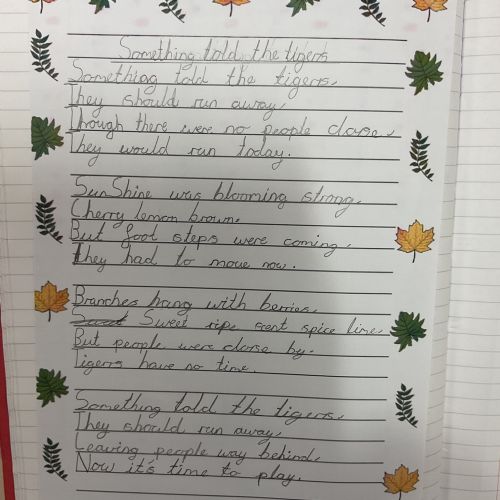 Something told the tigers
Something told the tigers,
They should run away,
Though there were no people close,
They would run today.
SunShine was blooming strong,
Cherry lemon brown,
But foot steps were coming,
They had to move now.
Branches hang with berries,
Sweet ripe scent spice lime,
But people were close by.
Tigers have no time.
Something told the tigers,
They should run away,
Leaving people way behind,
Now it's time to play.